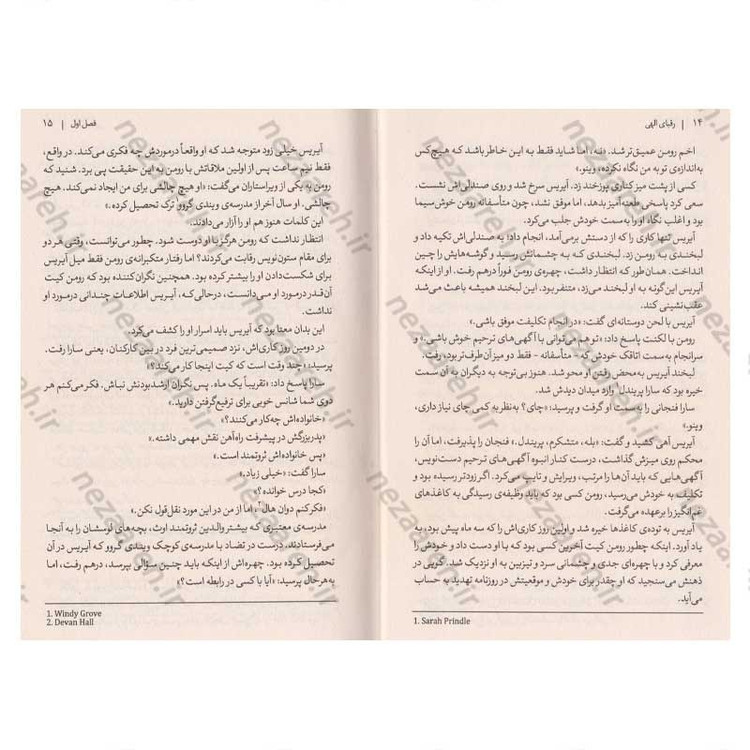 ۱۴ | رقبای الهی
اخم رومن عمیق‌تر شد. «نه، اما شاید فقط به این خاطر باشد که هیچ‌کس
به‌اندازه‌ی تو به من نگاه نکرده، وینو.»
کسی از پشت میز کناری پوزخند زد. آیریس سرخ شد و روی صندلی‌اش نشست.
سعی کرد پاسخی طعنه‌آمیز بدهد، اما موفق نشد، چون متأسفانه رومن خوش‌سیما
بود و اغلب نگاه او را به‌سمت خودش جلب می‌کرد.
آیریس تنها کاری را که از دستش برمی‌آمد، انجام داد؛ به صندلی‌اش تکیه داد و
لبخندی به رومن زد. لبخندی که به چشمانش رسید و گوشه‌هایش را چین
انداخت. همان‌طور که انتظار داشت، چهره‌ی رومن فوراً درهم رفت. او از اینکه
آیریس این‌گونه به او لبخند می‌زد، متنفر بود. این لبخند همیشه باعث می‌شد
عقب‌نشینی کند.
آیریس با لحن دوستانه‌ای گفت: «در انجام تکلیفت موفق باشی.»
رومن با لکنت پاسخ داد: «تو هم می‌توانی با آگهی‌های ترحیم خوش باشی.» و
سرانجام به سمت اتاقک خودش که - متأسفانه - فقط دو میز آن‌طرف‌تر بود، رفت.
لبخند آیریس به‌محض رفتن او محو شد. هنوز بی‌توجه به دیگران به آن سمت
خیره بود که سارا پریندل¹ وارد میدان دیدش شد.
سارا فنجانی را به‌سمت او گرفت و پرسید: «چای؟ به‌نظر به کمی چای نیاز داری،
وینو.»
آیریس آهی کشید و گفت: «بله، متشکرم، پریندل.» فنجان را پذیرفت، اما آن را
محکم روی میزش گذاشت، درست کنار انبوه آگهی‌های ترحیم دست‌نویس،
آگهی‌هایی که باید آن‌ها را مرتب، ویرایش و تایپ می‌کرد. اگر زودتر رسیده بود و
تکلیف به خودش می‌رسید، رومن کسی بود که باید وظیفه‌ی رسیدگی به کاغذهای
غم‌انگیز را برعهده می‌گرفت.
آیریس به توده‌ی کاغذها خیره شد و اولین روز کاری‌اش را که سه ماه پیش بود، به
یاد آورد. اینکه چطور رومن کیت آخرین کسی بود که با او دست داد و خودش را
معرفی کرد و با چهره‌ای جدی و چشمانی سرد و تیزبین به او نزدیک شد. گویی در
ذهنش می‌سنجید که او چقدر برای خودش و موقعیتش در روزنامه تهدید به حساب
می‌آید.
1. Sarah Prindle
فصل اول | ۱۵
آیریس خیلی زود متوجه شد که او واقعاً درموردش چه فکری می‌کند. در واقع،
فقط نیم ساعت پس از اولین ملاقاتش با رومن به این حقیقت پی برد. شنید که
رومن به یکی از ویراستاران می‌گفت: «او هیچ چالشی برای من ایجاد نمی‌کند. هیچ
چالشی. او سال آخر از مدرسه‌ی ویندی گروو¹ ترک تحصیل کرده.»
این کلمات هنوز هم او را آزار می‌دادند.
انتظار نداشت که رومن هرگز با او دوست شود. چطور می‌توانست، وقتی هر دو
برای مقام ستون‌نویس رقابت می‌کردند؟ اما رفتار متکبرانه‌ی رومن فقط میل آیریس
برای شکست‌دادن او را بیشتر کرده بود. همچنین نگران‌کننده بود که رومن کیت
آن‌قدر درمورد او می‌دانست، درحالی‌که، آیریس اطلاعات چندانی درمورد او
نداشت.
این بدان معنا بود که آیریس باید اسرار او را کشف می‌کرد.
در دومین روز کاری‌اش، نزد صمیمی‌ترین فرد در بین کارکنان، یعنی سارا رفت.
پرسید: «چند وقت است که کیت اینجا کار می‌کند؟»
سارا پاسخ داد: «تقریباً یک ماه. پس نگران ارشدبودنش نباش. فکر می‌کنم هر
دوی شما شانس خوبی برای ترفیع‌گرفتن دارید.»
«خانواده‌اش چه‌کار می‌کنند؟»
«پدربزرگش در پیشرفت راه‌آهن نقش مهمی داشته.»
«پس خانواده‌اش ثروتمند است.»
سارا گفت: «خیلی زیاد.»
«کجا درس خوانده؟»
«فکرکنم دوان هال²، اما از من در این مورد نقل‌قول نکن.»
مدرسه‌ی معتبری که بیشتر والدین ثروتمند اوث، بچه‌های لوسشان را به آنجا
می‌فرستادند. درست در تضاد با مدرسه‌ی کوچک ویندی گروو که آیریس در آن
تحصیل کرده بود. چهره‌اش از اینکه باید چنین سؤالی بپرسد، درهم رفت، اما
به‌هرحال پرسید: «آیا با کسی در رابطه است؟»
1. Windy Grove
2. Devan Hall